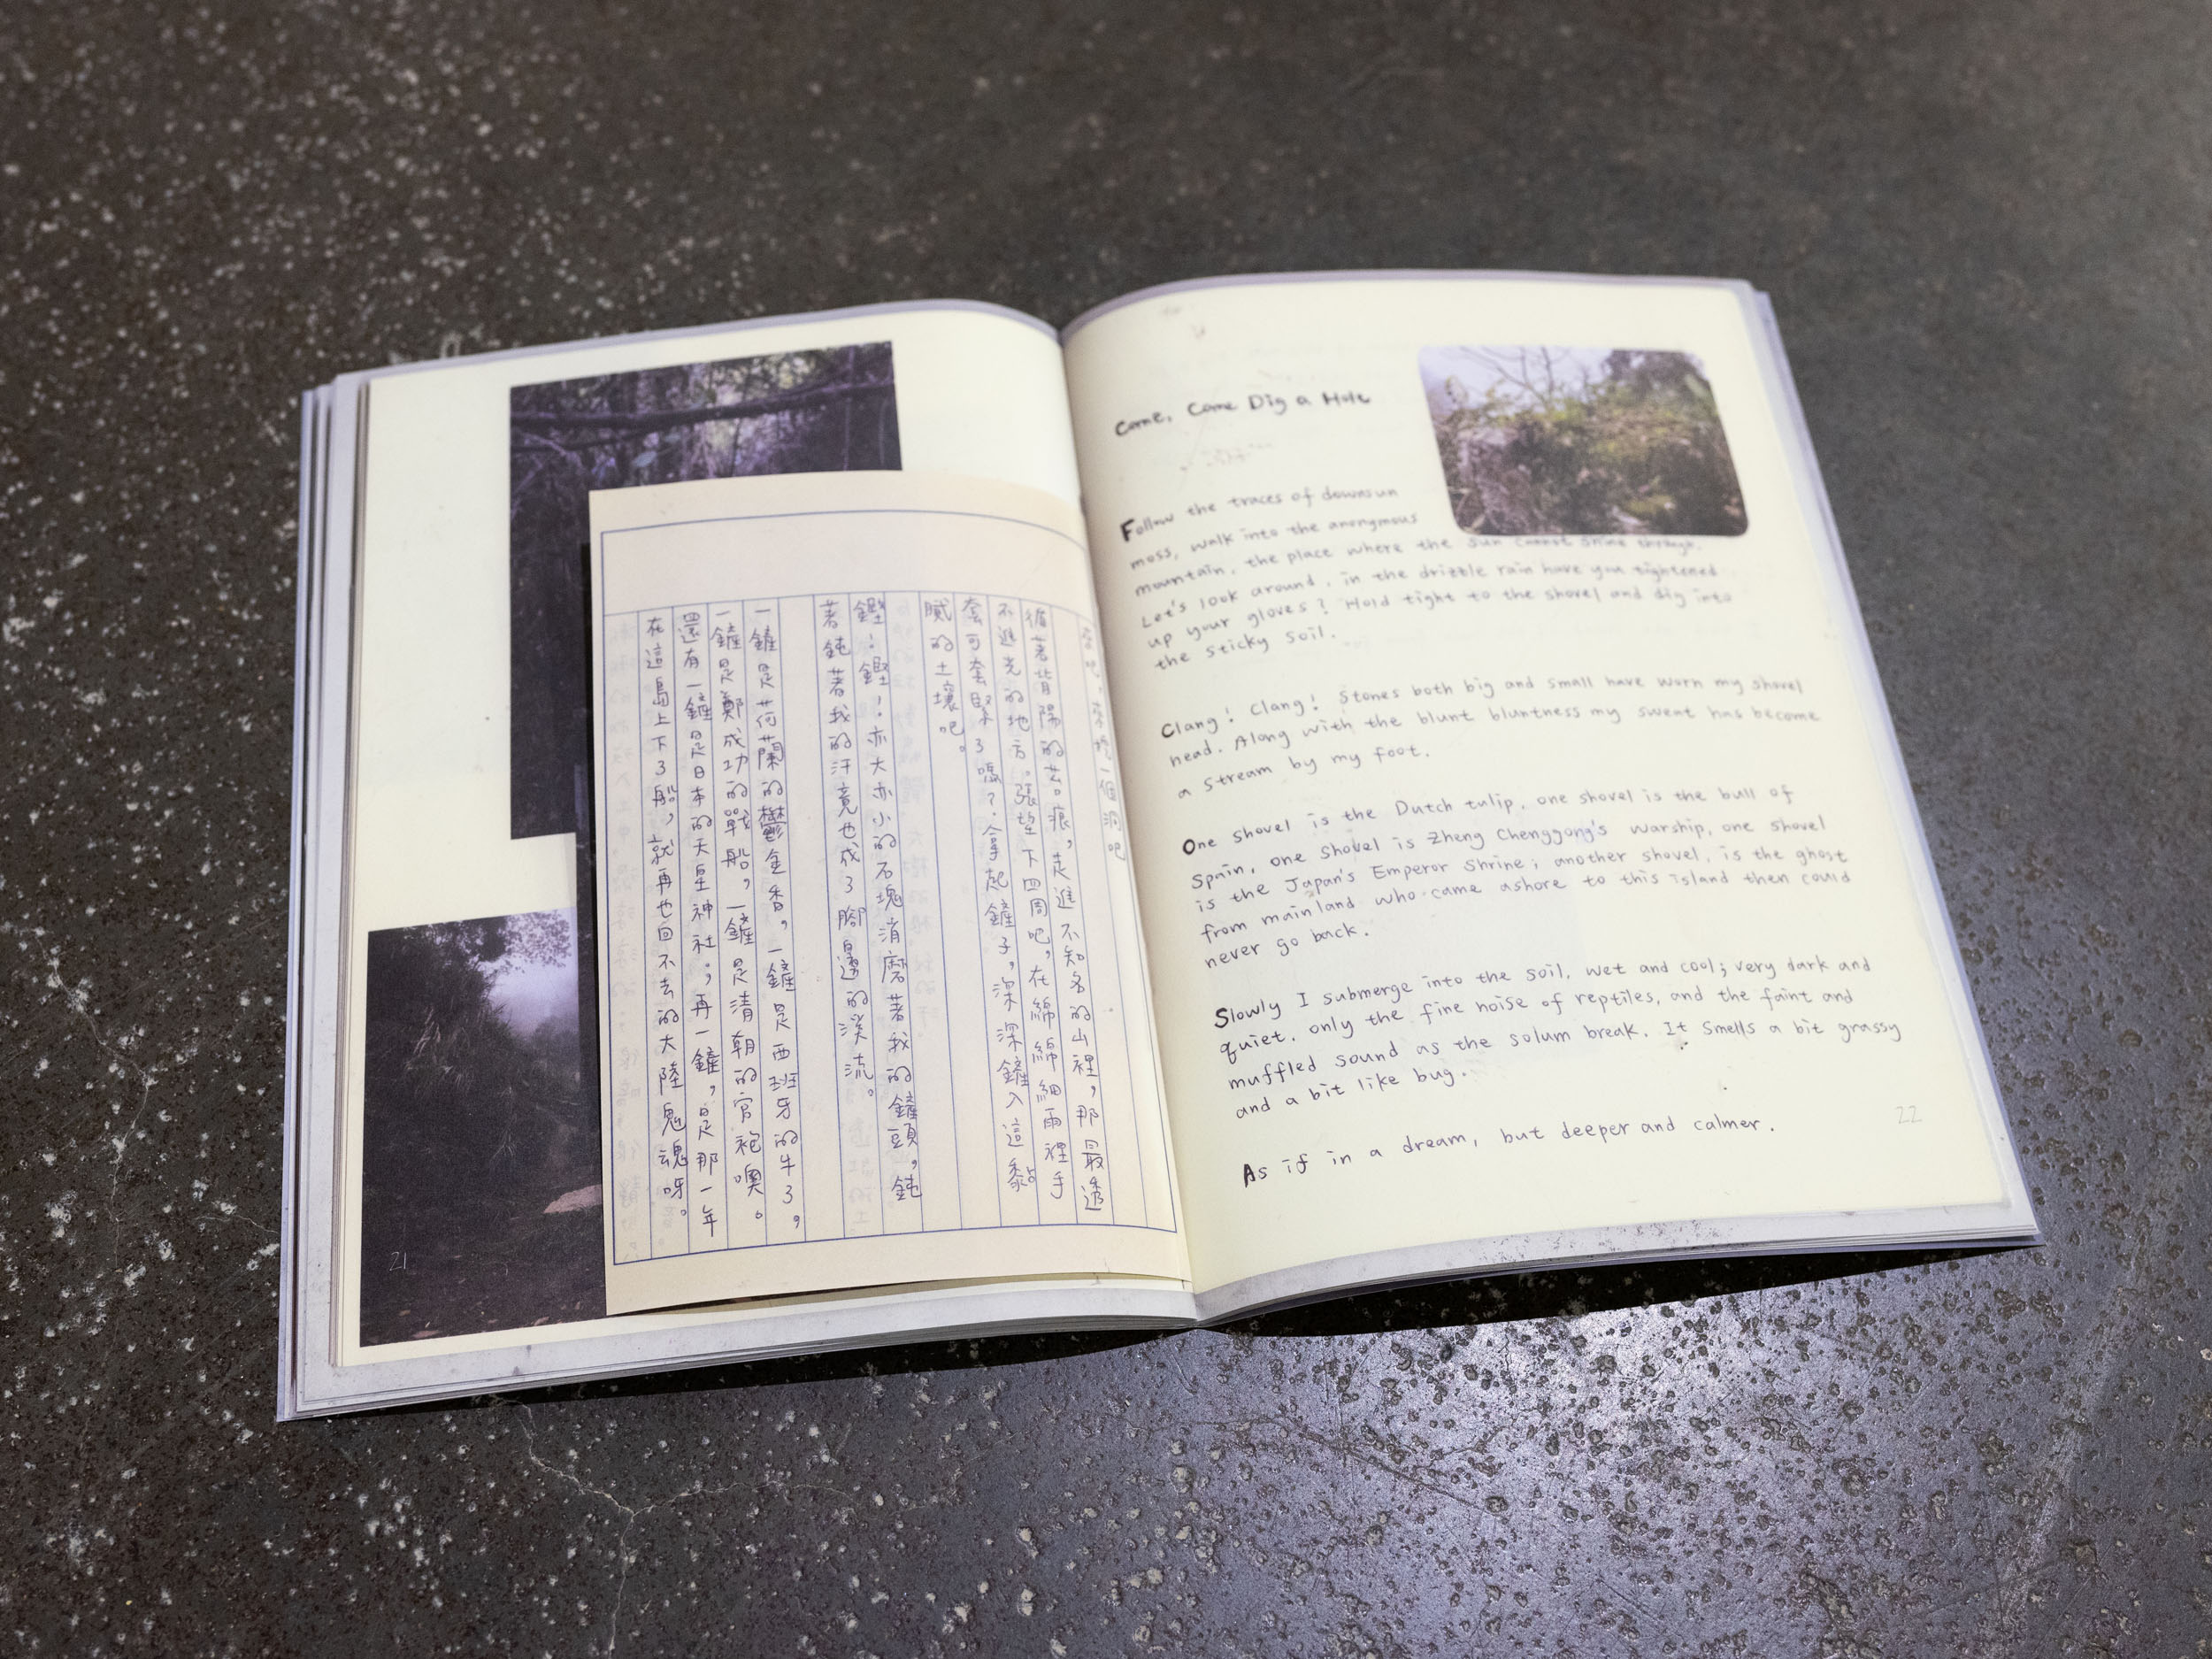 來吧，來挖一個洞吧
循著背陽的苔痕，走進不知名的山裡，那最透
不進光的地方。張望下四周吧，在綿綿細雨裡手
套可套緊了嗎？拿起鏟子，深深鏟入這黏
膩的土壤吧。
鏗！鏗！亦大亦小的石塊消磨著我的鏟頭，鈍
著鈍著我的汗竟也成了腳邊的溪流。
一鏟是荷蘭的鬱金香，一鏟是西班牙的牛了，
一鏟是鄭成功的戰船，一鏟是清朝的官袍噢。
還有一鏟是日本的天皇神社；再一鏟，是那一年
在這島上下了船，就再也回不去的大陸鬼魂呀。
21
Come, Come Dig a Hole
Follow the traces of downsun
moss, walk into the anonymous
mountain, the place where the sun cannot shine through.
Let's look around, in the drizzle rain have you tightened
up your gloves? Hold tight to the shovel and dig into
the sticky soil.
Clang! Clang! Stones both big and small have worn my shovel
head. Along with the blunt bluntness my sweat has become
a stream by my foot.
One shovel is the Dutch tulip, one shovel is the bull of
Spain, one shovel is Zheng Chenggong's warship, one shovel
is the Japan's Emperor Shrine; another shovel, is the ghost
from mainland who came ashore to this island then could
never go back.
Slowly I submerge into the soil, wet and cool; very dark and
quiet, only the fine noise of reptiles, and the faint and
muffled sound as the solum break. It smells a bit grassy
and a bit like bug.
As if in a dream, but deeper and calmer.
22